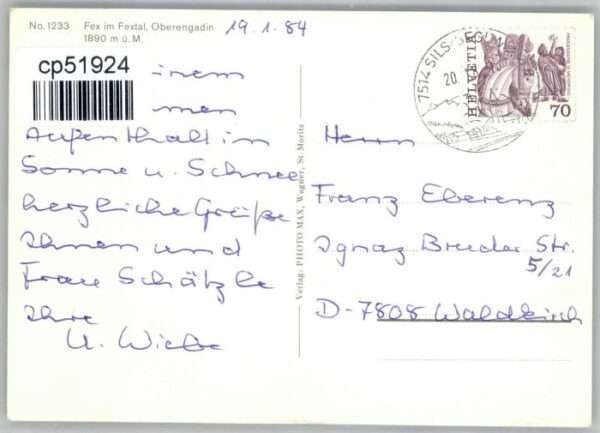 No. 1233 Fex im Fextal, Oberengadin
1890 m ü. M.
19.1.84
cp51924
einem
men
Aufenthalt in
Sonne u. Schnee
herzliche Grüße
Ihnen und
Frau Schätzle
Ihre
U. Wiebe
Verlag: PHOTO MAX, Wagner, St. Moritz
7514 SILS/SEGL
20.
HELVETIA
70
Herrn
Franz Eberenz
Ignaz Bruder Str.
5/21
D-7808 Waldkirch